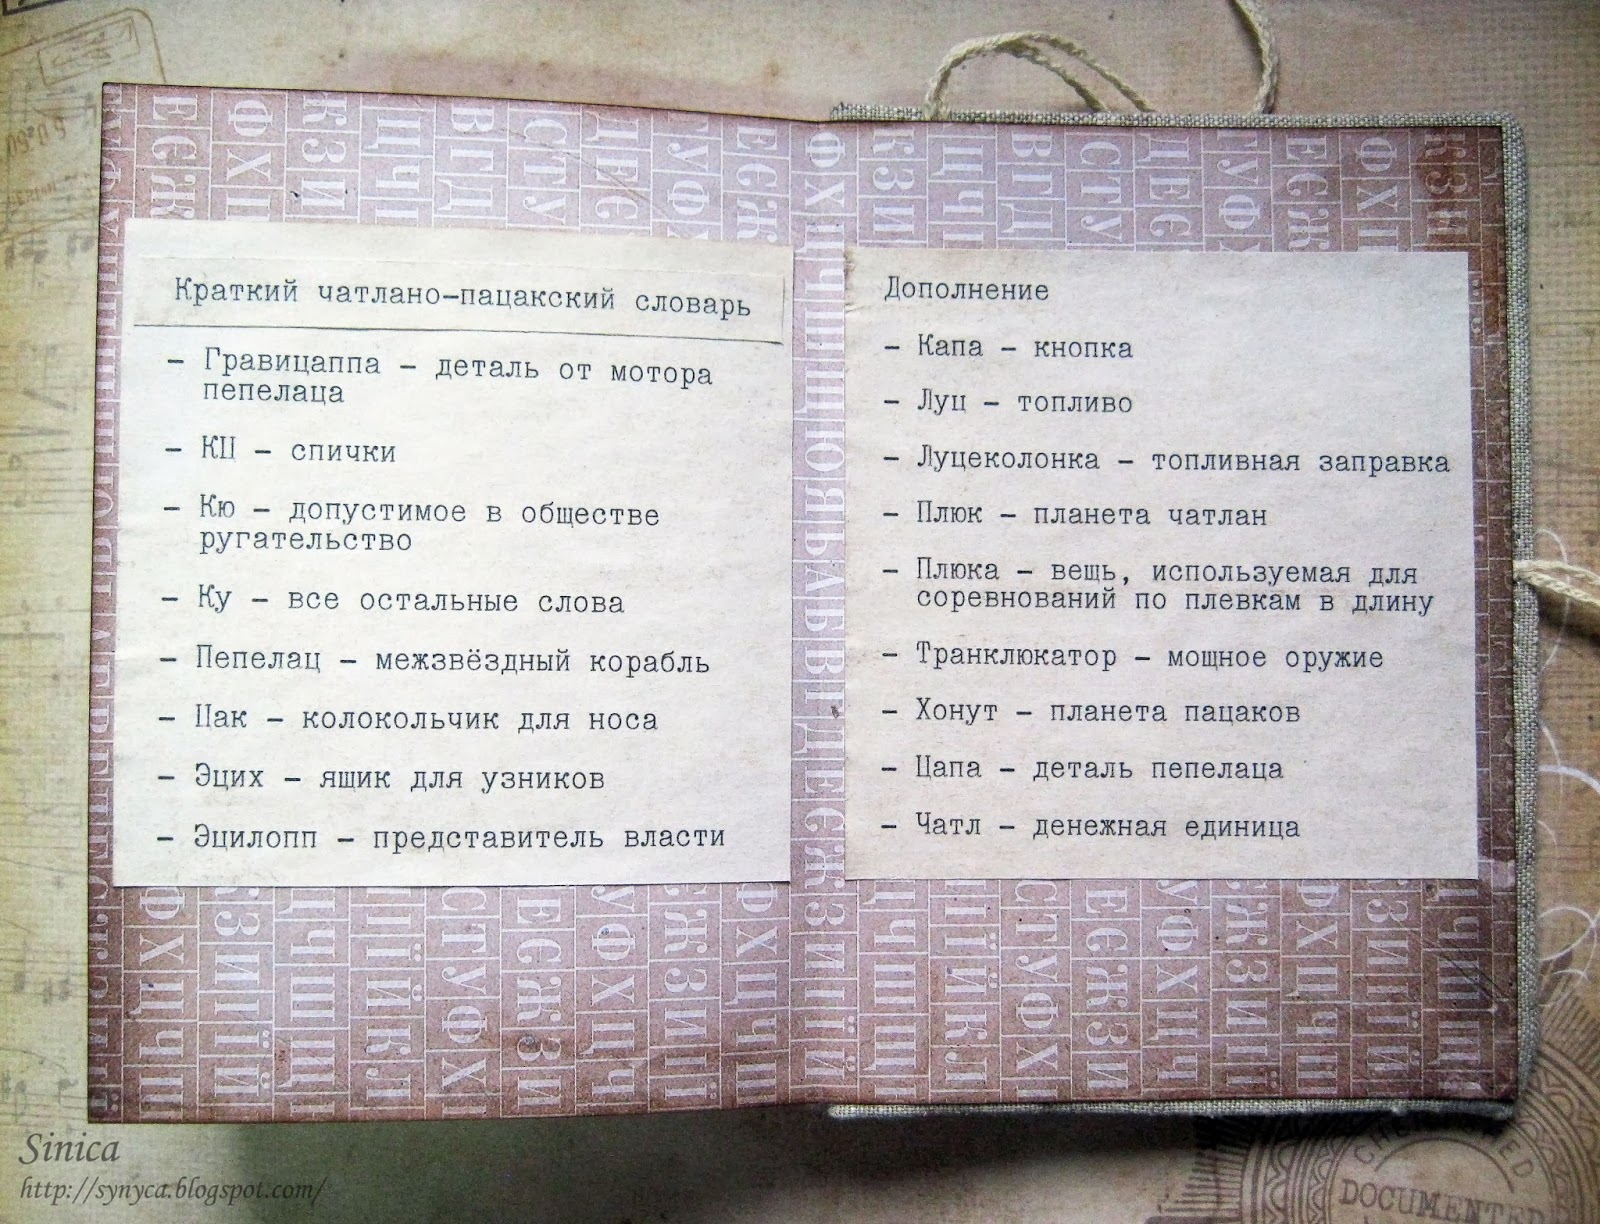 Краткий чатлано-пацакский словарь
– Гравицаппа – деталь от мотора
пепелаца
– КЦ – спички
– Кю – допустимое в обществе
ругательство
– Ку – все остальные слова
– Пепелац – межзвёздный корабль
– Цак – колокольчик для носа
– Эцих – яшик для узников
– Эцилопп – представитель власти
Дополнение
– Капа – кнопка
– Луц – топливо
– Луцеколонка – топливная заправка
– Плюк – планета чатлан
– Плюка – вещь, используемая для
соревнований по плевкам в длину
– Транклюкатор – мощное оружие
– Хонут – планета пацаков
– Цапа – деталь пепелаца
– Чатл – денежная единица
Sinica
http://synyca.blogspot.com/
DOCUMENTED